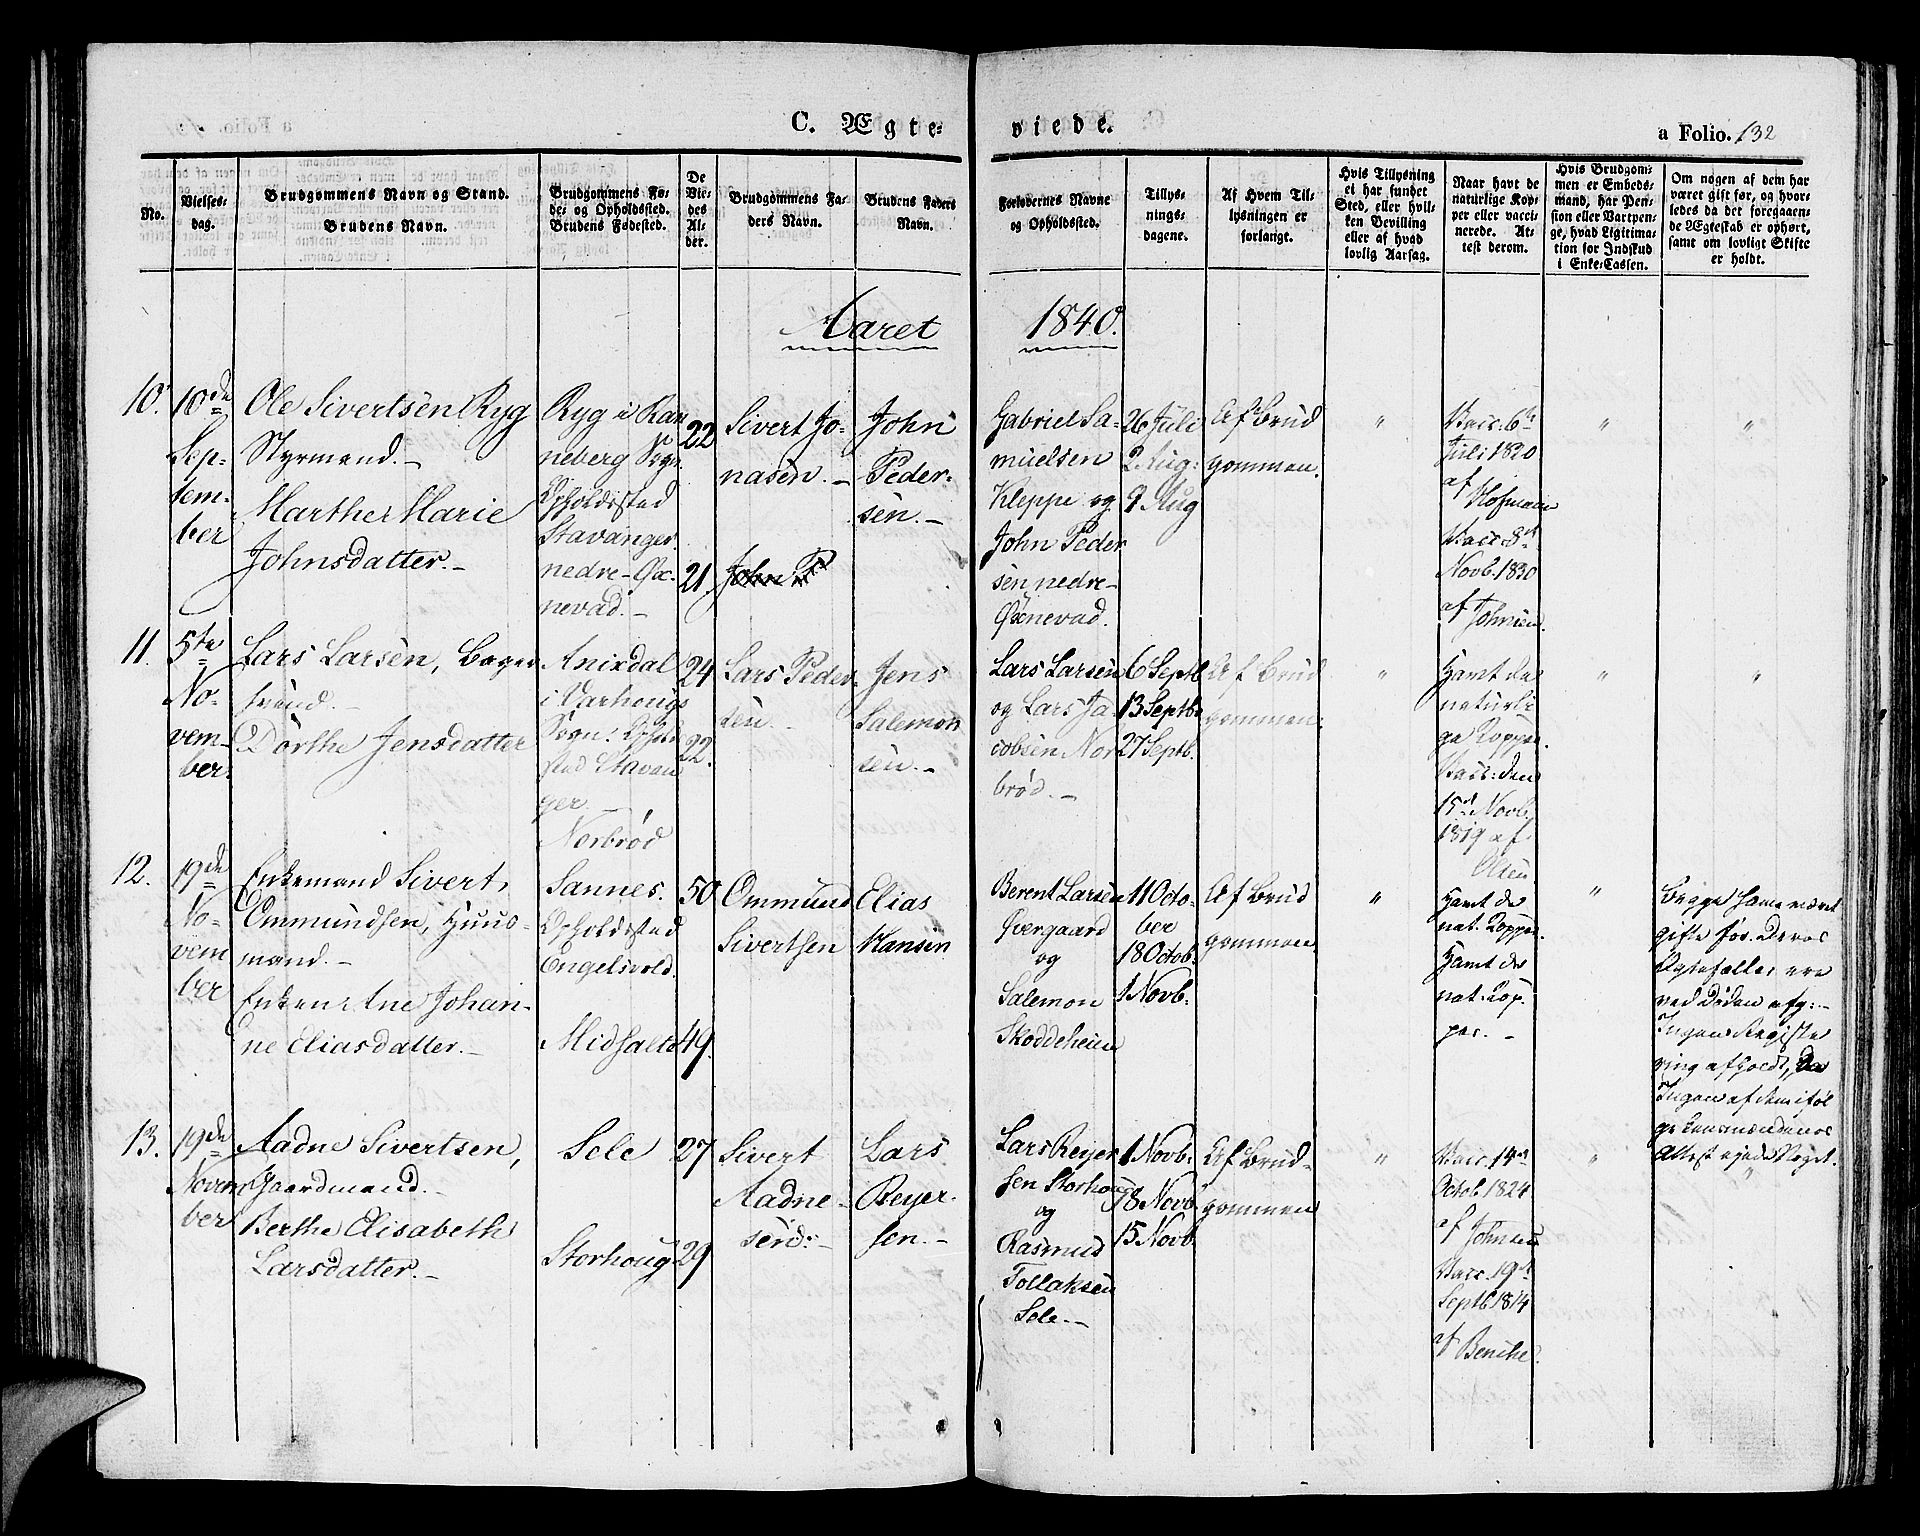 C. Ægte- viede.
a Folio. 132
No.
Vielses-
dag.
Brudgommens Navn og Stand.
Brudens Navn.
Brudgommens Fø-
de- og Opholdssted.
Brudens Fødested.
De
Vie-
des
Al-
der.
Brudgommens Fa-
ders Navn.
Brudens Faders
Navn.
Forlovernes Navne
og Opholdssted.
Tillys-
nings-
dagene.
Af Hvem Til-
lysningen er
forlangt.
Hvis Tillysning
ei har fundet
Sted, eller hvil-
ken Bevilling
eller af hvad
lovlig Aarsag.
Naar havt de
naturlige Kop-
per eller vacci-
nerede. At-
test derom.
Hvis Brudgom-
men er Embeds-
mand, har Pen-
sion eller Vartpen-
ge, hvad Legitima-
tion for Indskud
i Enke-Cassen.
Om nogen af dem har
været gift før, og hvor-
ledes da det foregaaen-
de Ægteskab er ophørt,
samt om lovligt Skifte
er holdt.
Aaret 1840.
10.
10de
Sep-
tem-
ber
Ole Sivertsen Ryg
Styrmand.-
Marthe Marie
Johnsdatter.-
Ryg i Ran
neberg Sogn
Opholdssted
Stavanger.
nedre-Øx-
nevad.-
22
21.
Sivert Jo-
nasen.-
John P
John
Peder-
sen.-
Gabriel Sa-
muelsen
Kleppe og
John Peder
sen nedre-
Øxnevad.
26 Juli
2 Aug:
9 Aug
Af Brud
gommen.
"
Vacc: 6te
Juli 1820
af
Hofmann
Vacc: 8de
Novb. 1830
af Johnsen.
"
"
11.
5te
No-
vem-
ber.
Lars Larsen,
Dorthe Jensdatter
Anixdal
i Varhougs
Sogn: Ophold
sted Stavan
ger.-
Norbrød
24
22.
Lars Peder-
sen.-
Jens
Salemon
sen.-
Lars Larsen
og Lars Ja-
cobsen Nor
brød.-
6 Septb
13 Septb
27 Septb.
Af Brud
gommen.
"
Havt de
naturli
ge Kopper.
Vacc: den
15de Novb.
1819 af
Olsen
"
"
12.
19de
No-
vem
ber
Enkemand Sivert
Ommundsen, Huus-
mand.-
Enken Ane Johan-
ne Eliasdatter.-
Sannes.
Opholdssted
Engelsvold.
Midhalte
50
49.
Ommund
Sivertsen
Elias
Hansen
Berent Larsen
Øvergaard
og
Salemon
Skoddeheien
11 Octo-
ber
18 Octob.
1 Novb:
Af Brud
gommen
"
Havt de
nat. Kopper.
Havt de
nat. Kop-
per.-
"
Begge have været
gifte før. Deres
Ægtefæller ere
ved Døden afg:-
Ingen Registe
ring afholdt, da
Ingen af dem iføl
ge Lensmændenes
Attest ejede Noget.
13.
19de
Novem
ber
Aadne Sivertsen,
Gaardmand.-
Berthe Elisabeth
Larsdatter.-
Sele
Storhoug
27
29
Sivert
Aadne-
sen.-
Lars
Reyer-
sen.-
Lars Reyer
sen Storhoug
og
Rasmus
Tollaksen
Sele.-
1 Novb:
8 Novb
15 Novb.
Af Brud-
gommen
"
Vacc. 14de
Octob 1824
af Johnsen
Vacc. 19de
Septb 1814
af Benche.
"
"